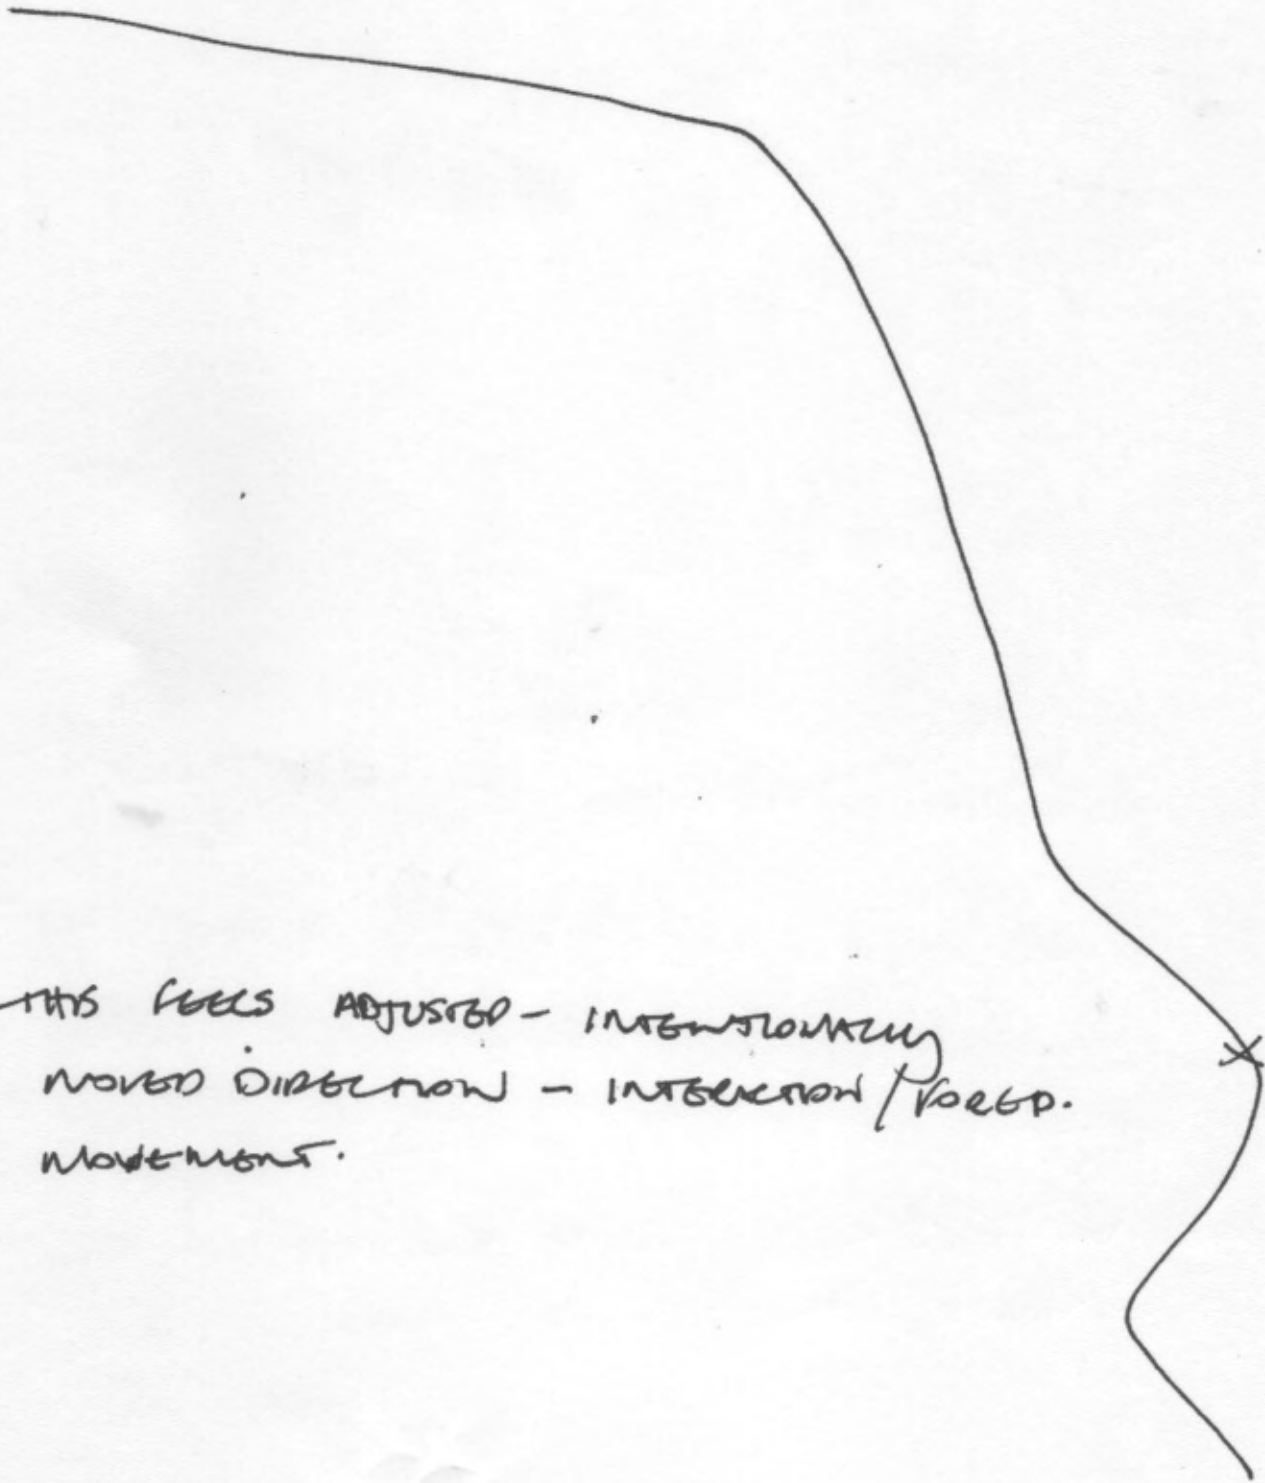 THIS FEELS ADJUSTED - INTENTIONALLY
MOVED DIRECTION - INTERACTION / FORCED.
MOVEMENT.